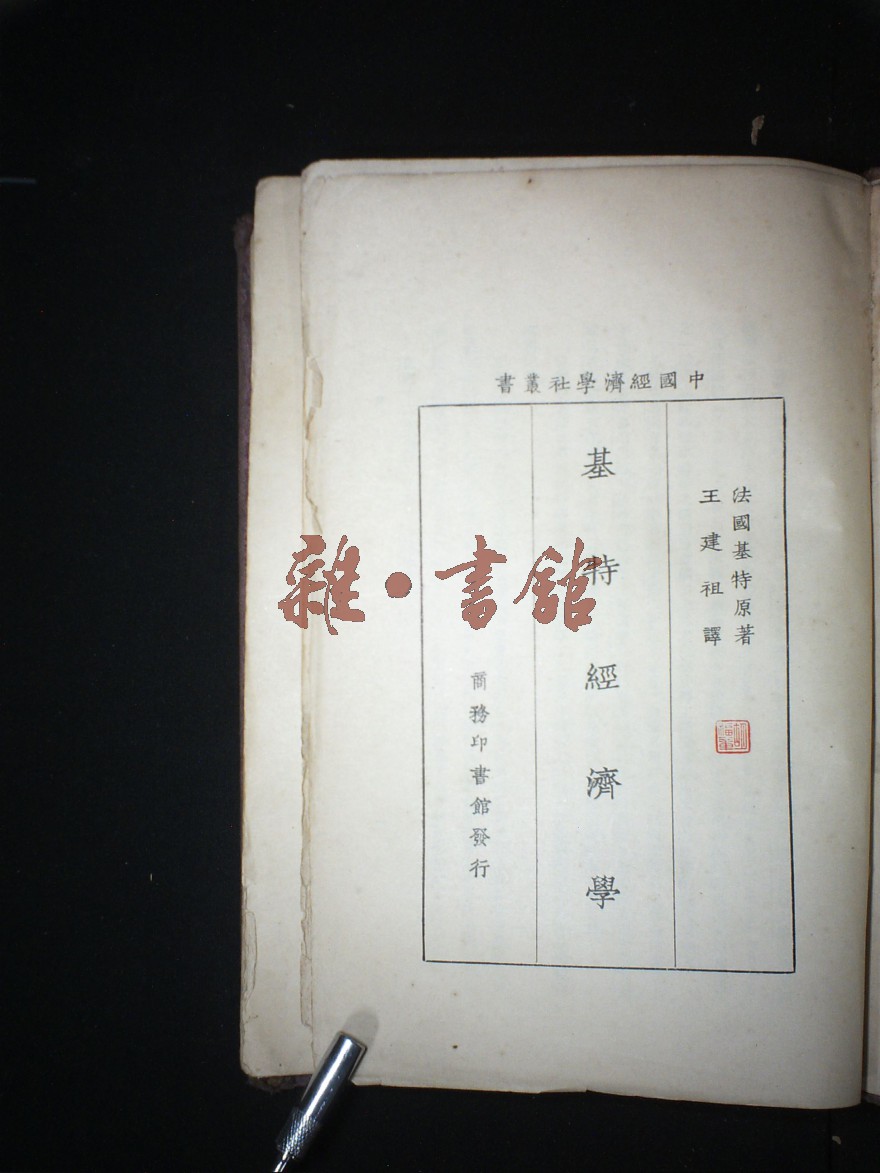 中國經濟學社叢書
法國基特原著
王建祖譯
基特經濟學
商務印書館發行
雜·書館